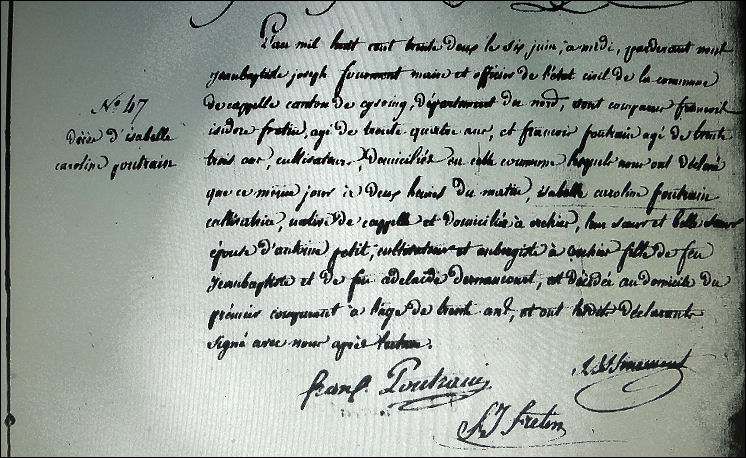 L'an mil huit cent trente deux le six juin, a midi, pardevant nous
jeanbaptiste joseph fourmont maire et officier de l'état civil de la commune
de cappelle canton de cysoing, département du nord, sont comparus francois
isidore fretin, agé de trente quatre ans, et francois poutrain agé de trente
trois ans, cultivateurs, domiciliés en cette commune lesquels nous ont déclaré
que ce même jour à deux heures du matin, isabelle caroline poutrain
cultivatrice, native de cappelle et domiciliée à orchies, leur sœur et belle sœur
épouse d'antoine petit, cultivateur et aubergiste à orchies fille de feu
jeanbaptiste et de feu adelaide dernancourt, est décédée au domicile du
prémier comparant a l'age de trente ans, et ont lesdits déclarants
signé avec nous après lecture.
N° 47
décès d'isabelle
caroline poutrain
franç. Poutrain
J. Bte fourmont
f I fretin